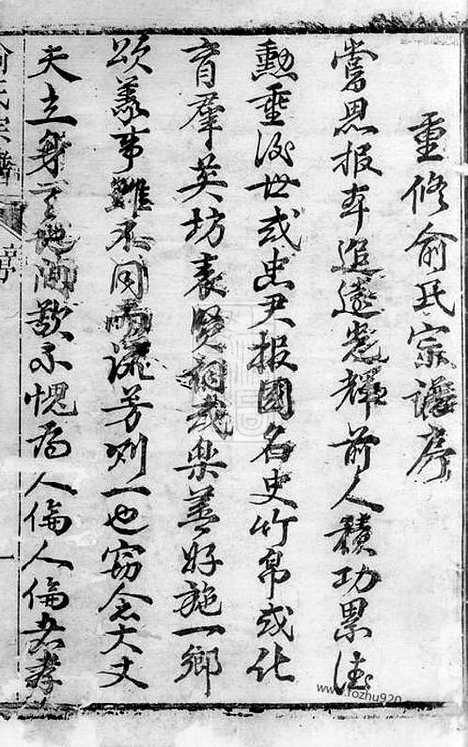 重修俞氏宗譜序
嘗思報本追遠光輝前人積功累德
勲垂後世或忠君報國名史竹帛或化
育羣英坊表賢祠或樂善好施一鄉
頌羨事雖不同而流芳则一也窃念大丈
夫立身天地间欲不愧為人倫人倫者孝
俞氏宗譜
序
一
www.fozhu920